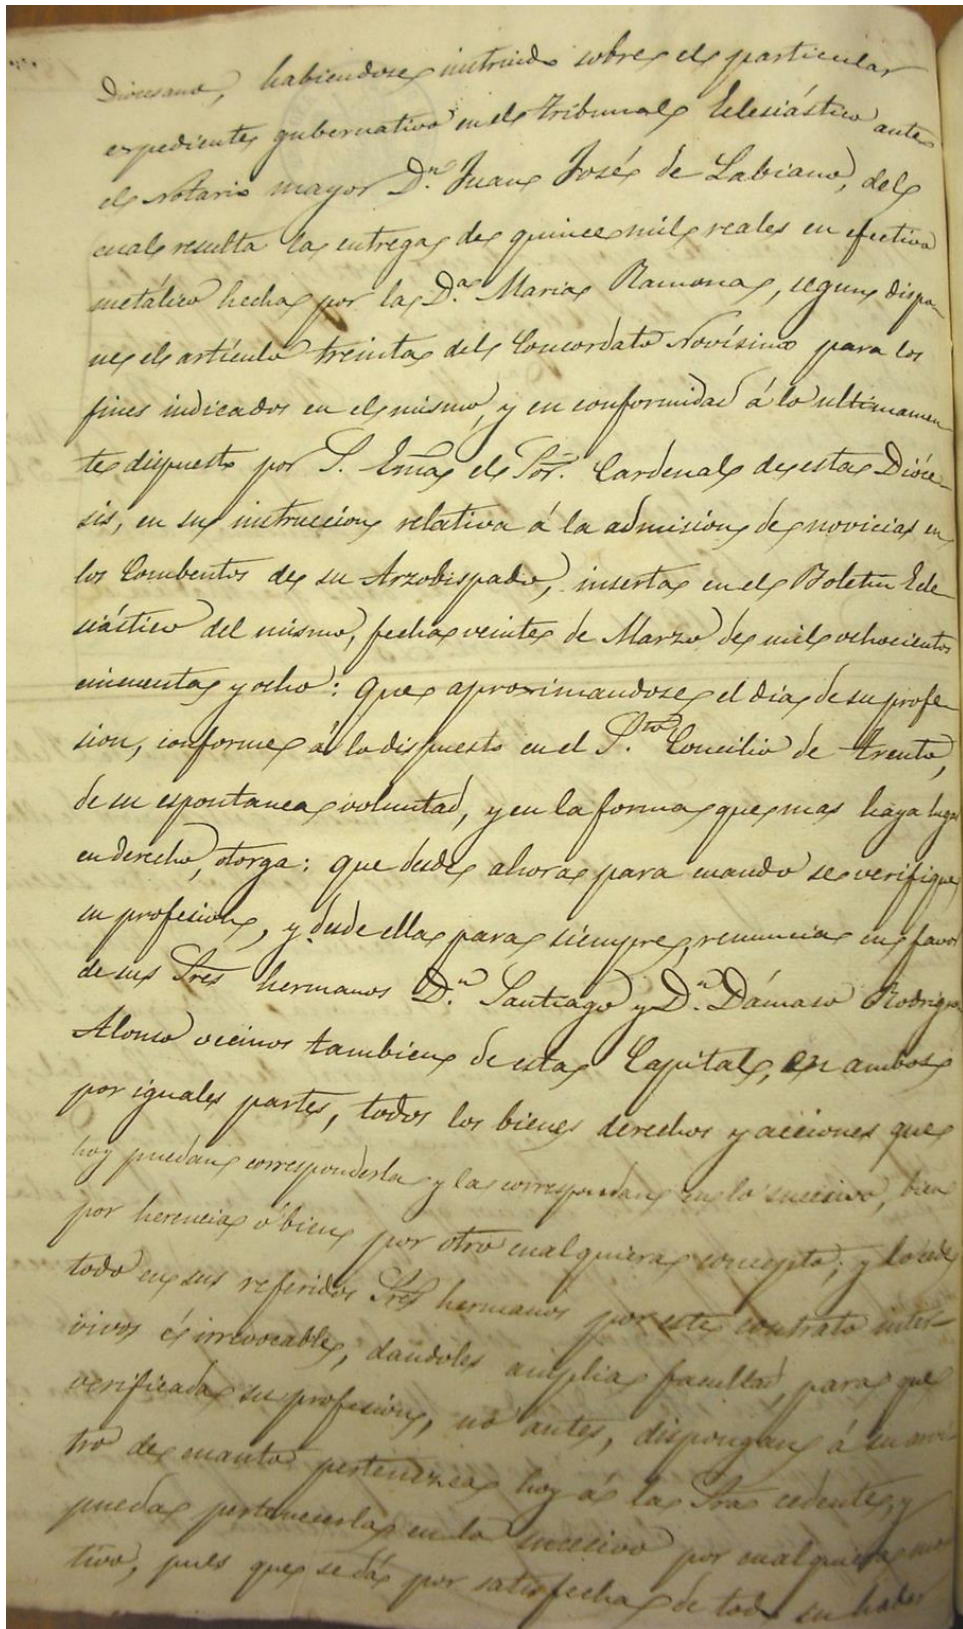 Diocesano, habiendose instruido sobre el particular
expediente gubernativo en el tribunal Eclesiástico ante
el Notario mayor D.n Juan José de Labiano, del
cual resulta la entrega de quince mil reales en efectivo
metálico hecha por la D.a Maria Ramona, segun dispo-
ne el artículo treinta del Concordato Novísimo para los
fines indicados en el mismo, y en conformidad á lo ultimamen
te dispuesto por S. Ema el Sor. Cardenal de esta Dióce-
sis, en su instruccion relativa á la admision de novicias en
los Combentos de su Arzobispado, inserta en el Boletin Ecle-
siástico del mismo, fecha veinte de Marzo de mil ochocientos
cincuenta y ocho: Que aproximandose el dia de su profe-
sion, conforme á lo dispuesto en el S.to Concilio de trento,
de su espontanea voluntad, y en la forma que mas haya lugar
en derecho, otorga: Que desde ahora para cuando se verifique
su profesion, y desde ella para siempre, renuncia en favor
de sus Sres hermanos D.n Santiago y D.n Dámaso Rodrigo
Alonso vecinos tambien de esta Capital, en ambos
por iguales partes, todos los bienes derechos y acciones que
hoy puedan corresponderla y la correspondan en lo sucesivo, bien
por herencia ó bien por otro cualquiera concepto; y lo cede
todo en sus referidos Sres hermanos por este contrato inter-
vivos é irrevocable, dandoles amplia facultad, para que
verificada su profesion, no antes, dispongan á su arvi-
tro de cuanto pertenezca hoy á la Sra cedente, y
pueda pertenecerla en lo sucesivo por cualquiera mo
tivo, pues que se dá por satisfecha de todo su haber